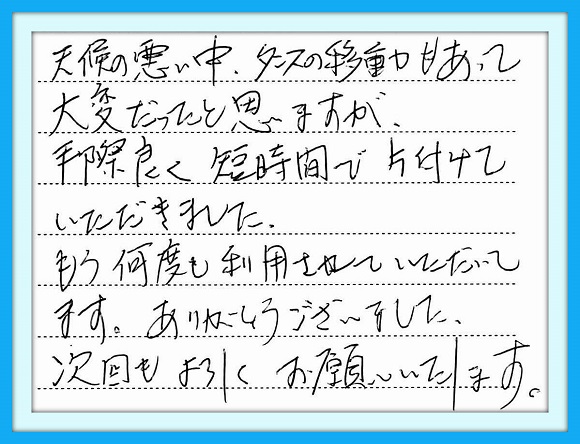 天候の悪い中、タンスの移動がもあって
大変だったと思いますが、
手際良く 短時間で 片付けて
いただきました。
もう何度も利用させていただいて
ます。ありがとうございました。
次回も よろしく お願いいたします。